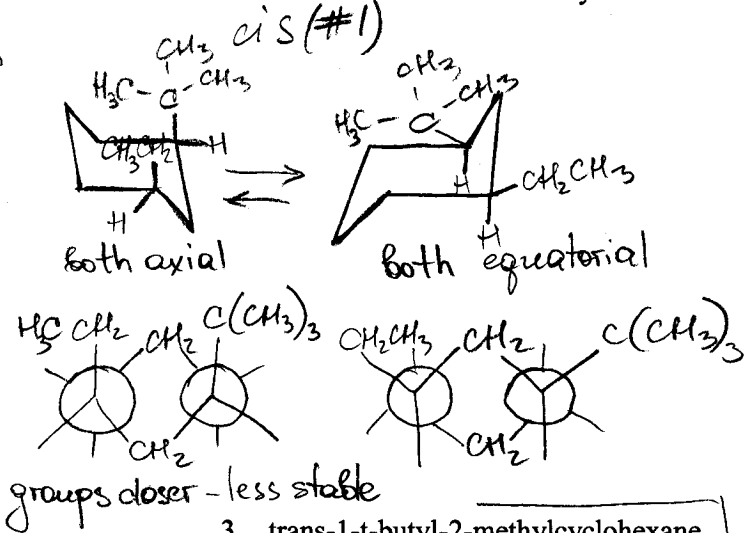 cis (#1)
CH3
H3C-C-CH3
CH3CH2
H
H
both axial
CH3
H3C-C-CH3
H
CH2CH3
H
both equatorial
H3C CH2
CH2
C(CH3)3
CH2
CH2CH3
CH2
C(CH3)3
CH2
groups closer - less stable
3 trans-1-t-butyl-2-methylcyclohexane